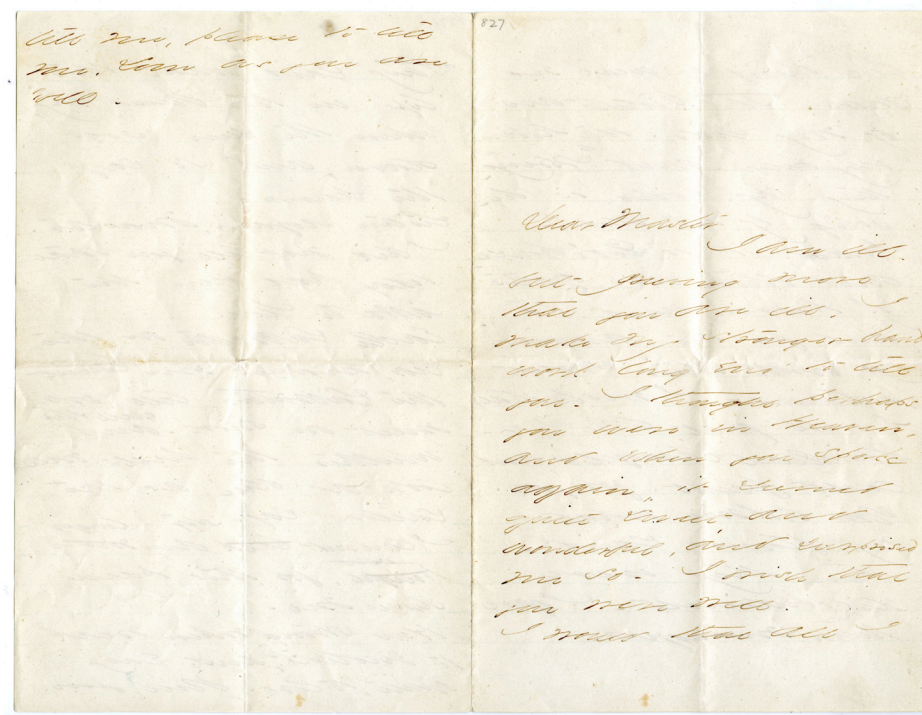 tell me, please to tell
me. Soon as you are
well.
827
Dear Master
I am ill.
but grieving more
that you are ill. I
make my stronger hand
work long eno' to tell
you. I thought perhaps
you were in Heaven,
and when you spoke
again, it seemed
quite sweet, and
wonderful, and surprised
me so - I wish that
you were well.
I would that all I